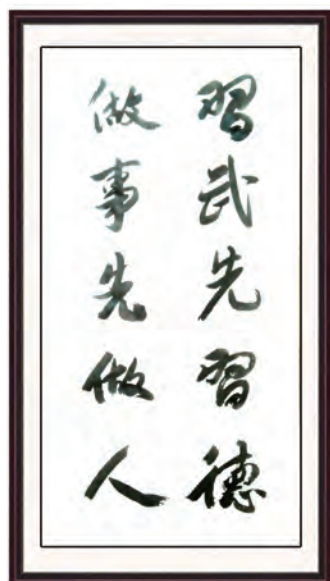 習武先習德
做事先做人